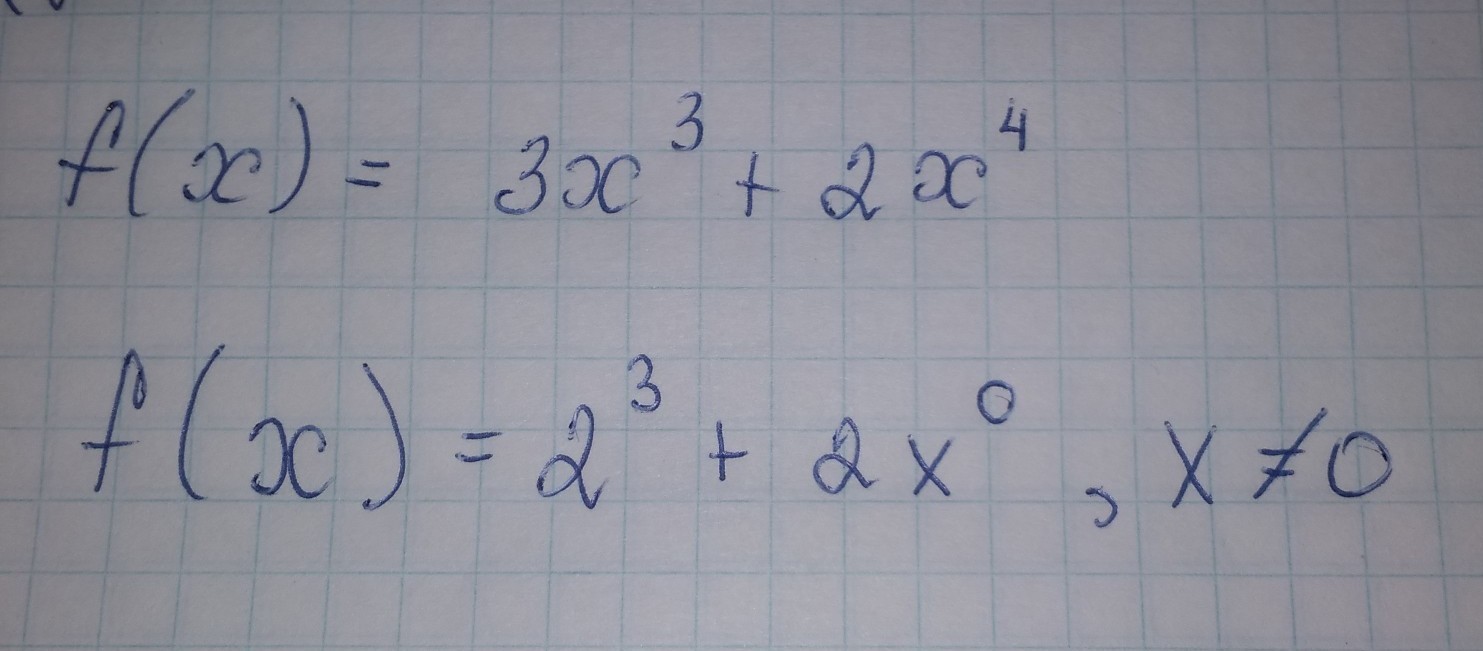 f(x) = 3x³ + 2x⁴
f(x) = 2³ + 2x⁰, x ≠ 0